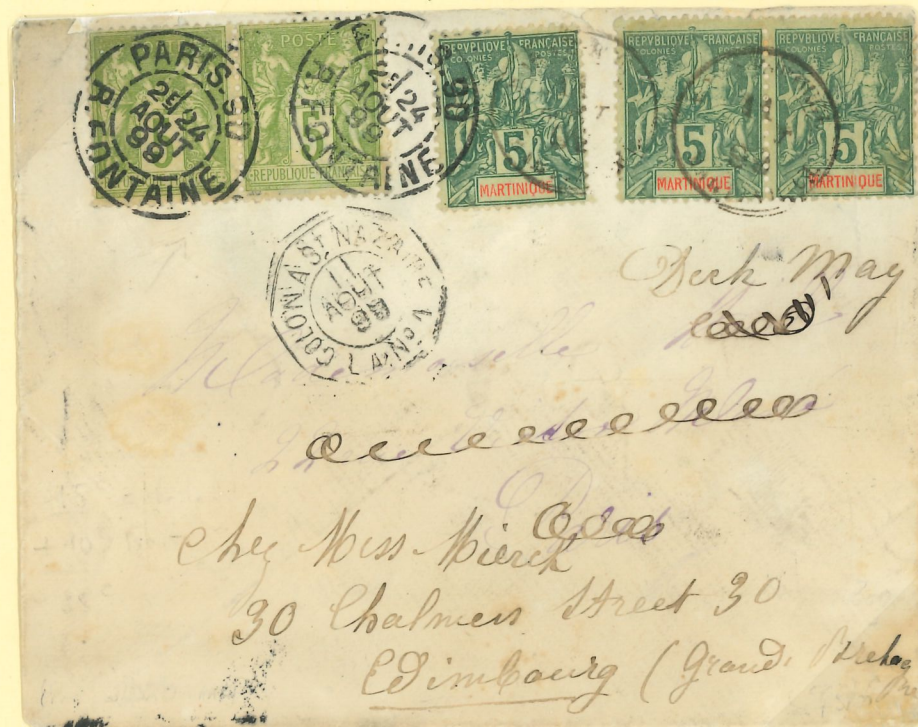 PARIS.30
2E/24
AOUT
99
R. FONTAINE
POSTES
5
REPUBLIQUE FRANÇAISE
2E/24
AOUT
99
R. FONTAINE
REPVBLIQVE FRANÇAISE
COLONIES POSTES
5
MARTINIQUE
REPVBLIQVE FRANÇAISE
COLONIES POSTES
5
MARTINIQUE
REPVBLIQVE FRANÇAISE
COLONIES POSTES
5
MARTINIQUE
COLON A ST NAZAIRE
11
AOUT
99
L. A No 1
Dick May
Mademoiselle
Chez Miss Mierck
30 Chalmers Street 30
Edimbourg (Grande Bretagne